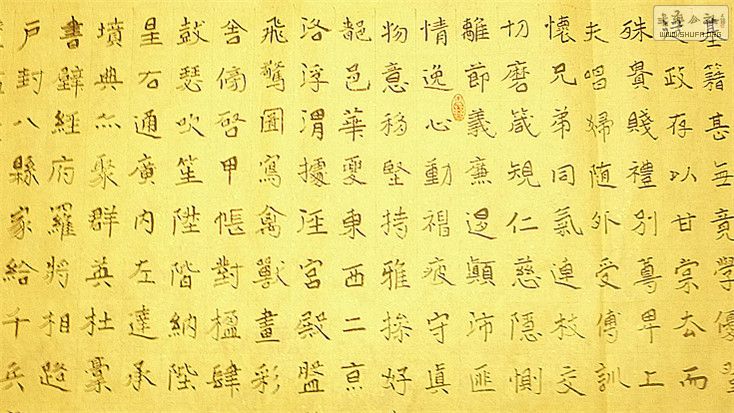 基籍甚無竟學優登
從政存以甘棠去而
殊貴賤禮別尊卑上
夫唱婦随外受傅訓
懷兄弟同氣連枝交
切磨箴規仁慈隱惻
離節義廉退顛沛匪
情逸心動神疲守真
物意移堅持雅操好
都邑華夏東西二京
洛浮渭據涇宮殿盤
飛驚圖寫禽獸畫彩
舍傍啓甲帳對楹肆
鼓瑟吹笙陞階納陛
星右通廣內左達承
墳典亦聚群英杜稾
書壁經府羅將相路
戶封八縣家給千兵
WWW.SHUFA.ORG